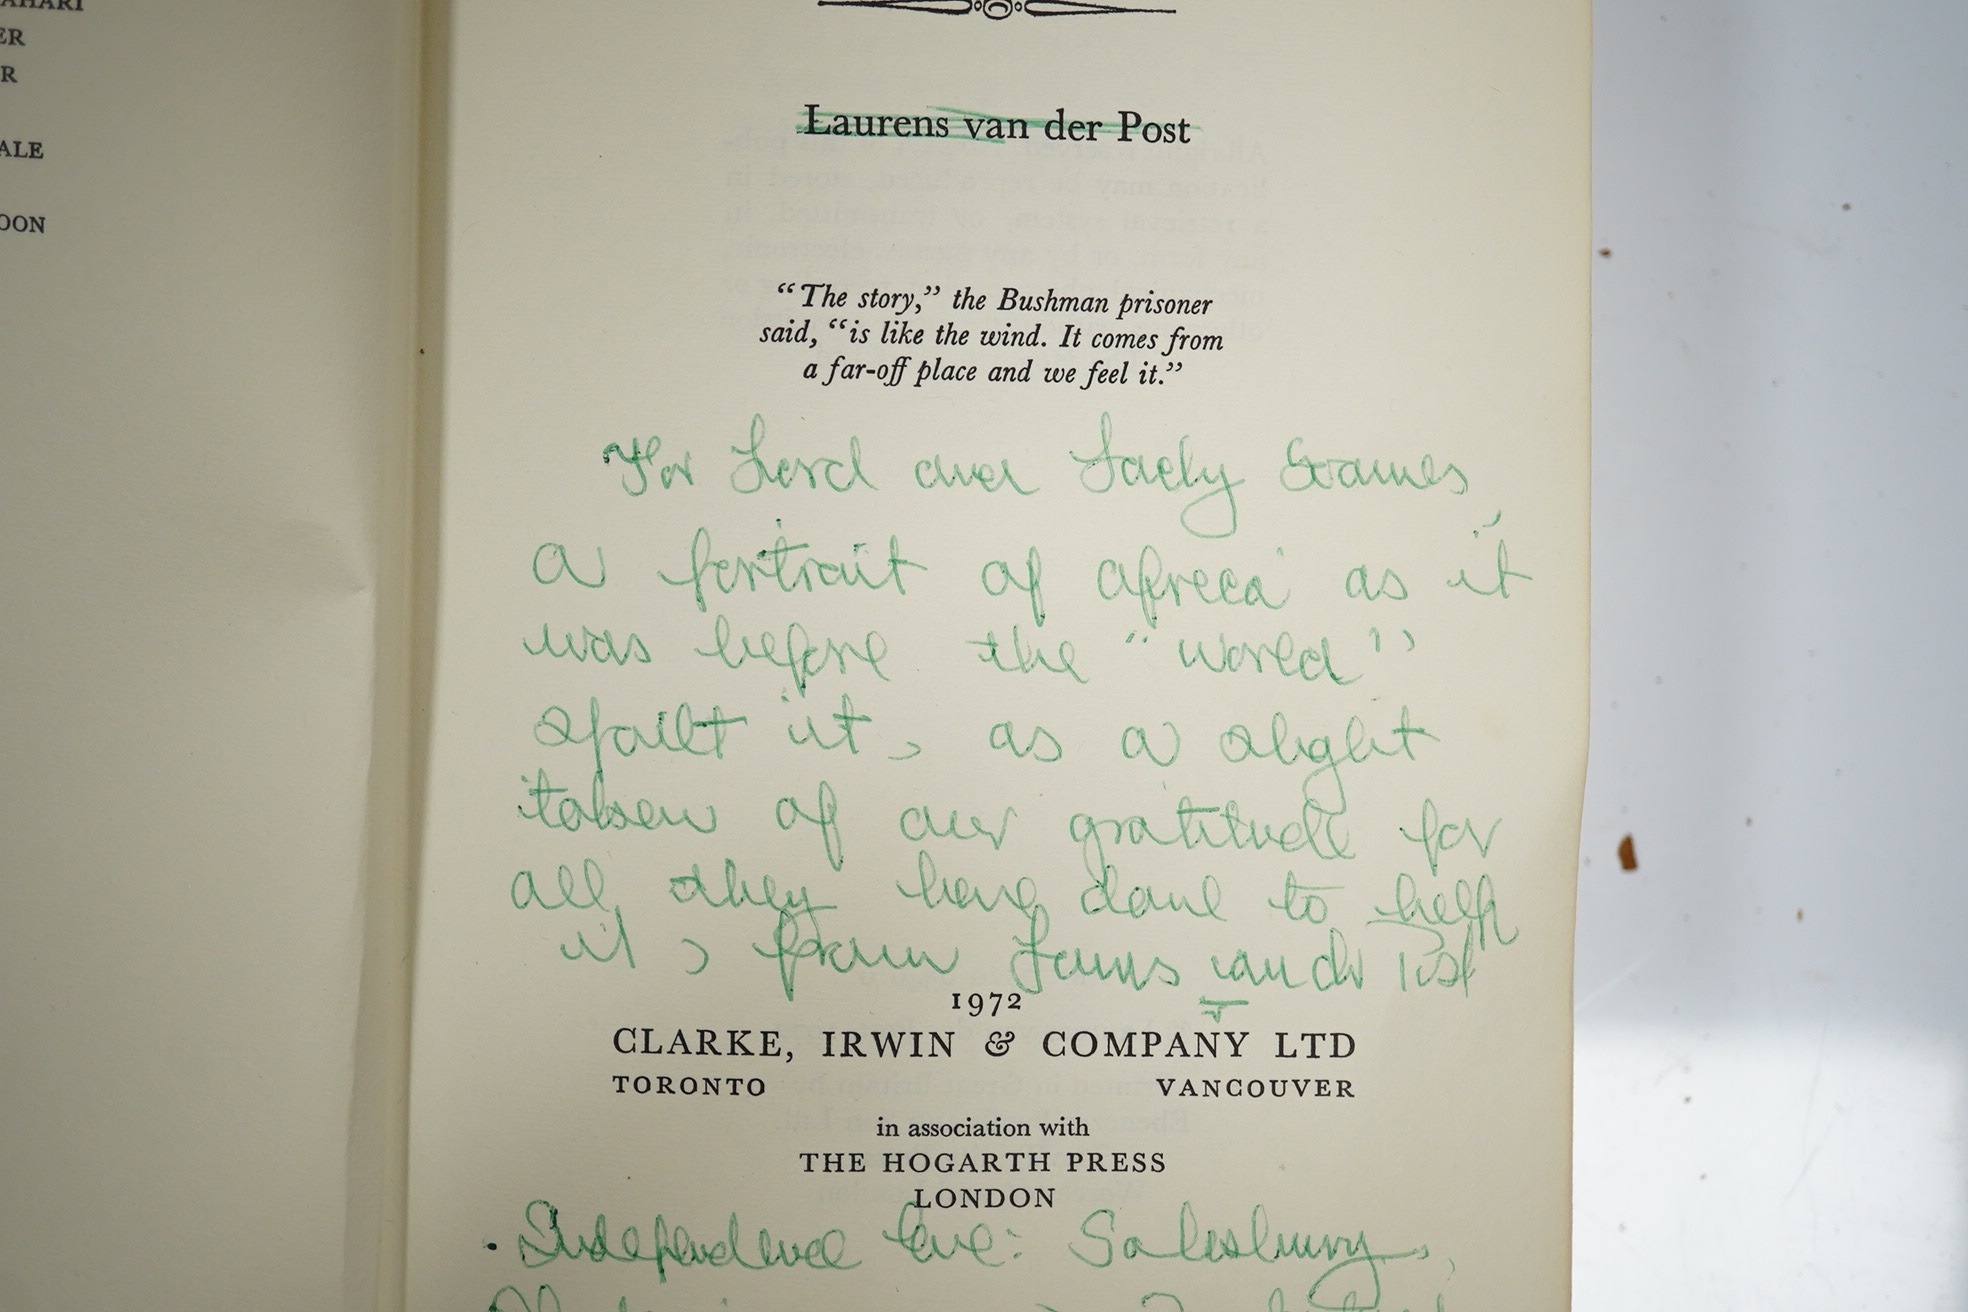 AHARI
ER
R
ALE
OON
Laurens van der Post
“The story,” the Bushman prisoner
said, “is like the wind. It comes from
a far-off place and we feel it.”
For Lord and Lady Soames,
a portrait of Africa as it
was before the "world"
spoilt it, as a slight
token of our gratitude for
all they have done to help
it, from Laurens van der Post
1972
CLARKE, IRWIN & COMPANY LTD
TORONTO VANCOUVER
in association with
THE HOGARTH PRESS
LONDON
Independence Eve: Salisbury,